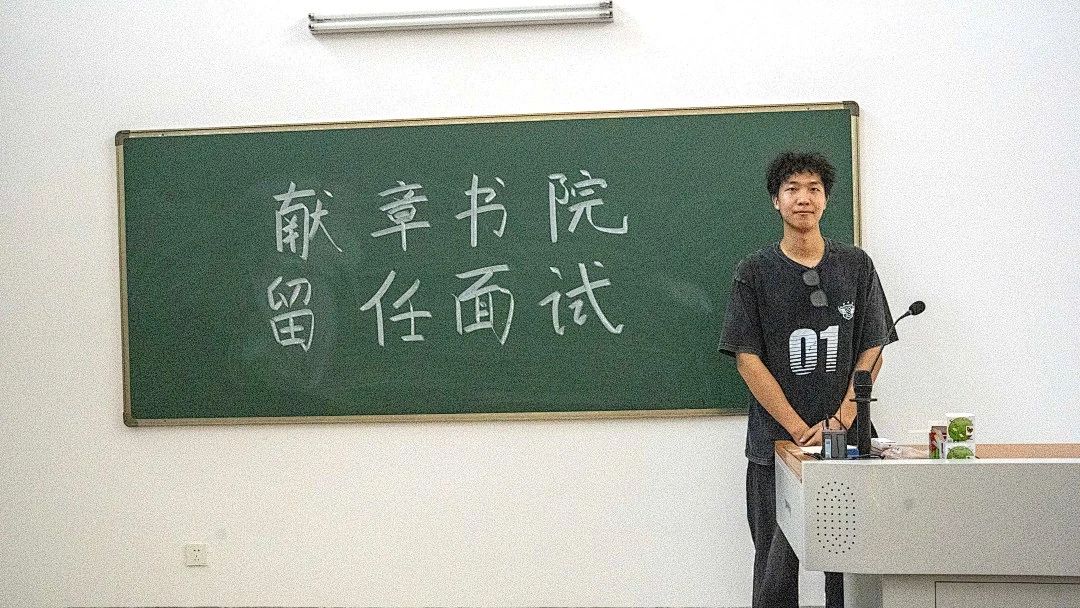 献章书院
留任面试
01